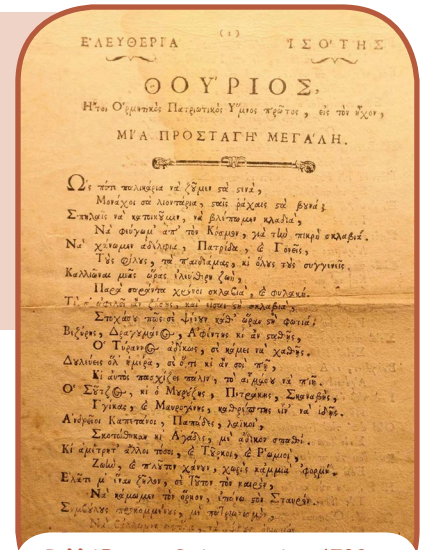 (1)
ἘΛΕΥΘΕΡΊΑ ἸΣΌΤΗΣ
ΘΟΎΡΙΟΣ,
Ἤτοι Ὁρμητικὸς Πατριωτικὸς Ὕμνος πρῶτος, εἰς τὸν ἦχον,
ΜΊΑ ΠΡΟΣΤΑΓῊ ΜΕΓΆΛΗ.
Ὡς πότε παλικάρια νὰ ζῶμεν στὰ στενά,
Μονάχοι σὰ λιοντάρια, σταῖς ῥάχαις στὰ βουνά;
Σπηλαῖς νὰ κατοικοῦμεν, νὰ βλέπωμεν κλαδιά,
Νὰ φεύγωμ' ἀπ' τὸν Κόσμον, γιὰ τὴν πικρὴ σκλαβιά.
Νὰ χάνωμεν ἀδέλφια, Πατρίδα, & Γονεῖς,
Τοὺς φίλους, τὰ παιδιά μας, κι ὅλους τοὺς συγγενεῖς.
Καλλιῶναι μιᾶς ὥρας ἐλεύθερη ζωή,
Παρὰ σαράντα χρόνοι σκλαβιά, & φυλακή.
Τί σ' ὠφελεῖ ἂν ζήσῃς, καὶ εἶσαι στὴ σκλαβιά,
Στοχάσου πῶς σὲ ψένουν καθ' ὥραν στὴ φωτιά;
Βεζύρης, Δραγουμάνος, Ἀφέντης κι ἂν σταθῇς,
Ὁ Τύραννος ἀδίκως, σὲ κάμει νὰ χαθῇς.
Δουλεύεις ὅλ' ἡμέρα, σὲ ὅ,τι κι ἄν σοι πῇ,
Κι αὐτὸς πασχίζει πάλιν, τὸ αἷμμου νὰ πιῇ.
Ὁ Σοῦτζος, κι ὁ Μουρούζης, Πετράκης, Σκαναβῆς,
Γγίκας, & Μαυρογένης, καθρέπτης εἶν' νὰ ἰδῇς.
Ἀνδρεῖοι Καπετάνοι, Παπάδες, λαϊκοί,
Σκοτώθηκαν κι Ἀγάδες, μὲ ἄδικον σπαθί.
Κι ἀμέτρητ' ἄλλοι τόσοι, & Τοῦρκοι, & Ῥωμιοί,
Ζωὴν, & πλοῦτον χάνουν, χωρὶς κἀμμιὰ ἀφορμή.
Ἐλᾶτε μ' ἕναν ζῆλον, σὲ τοῦτον τὸν καιρόν,
Νὰ κάμωμεν τὸν ὅρκον, ἐπάνω στὸν Σταυρόν.
Συμβούλους προκομμένους, μὲ πατριωτισμόν,